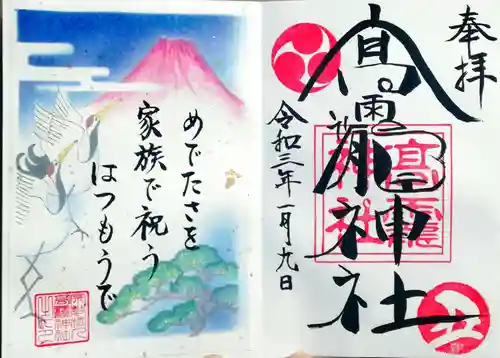 奉拝
髙龗神社
令和三年一月九日
めでたさを
家族で祝う
はつもうで